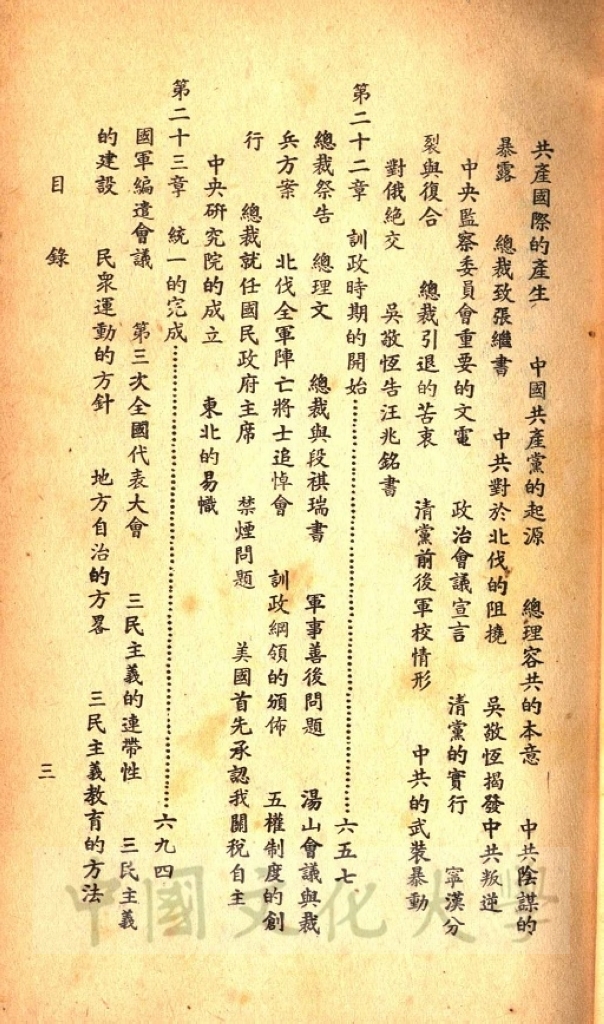 共產國際的產生　中國共產黨的起源　總理容共的本意　中共陰謀的
暴露　總裁致張繼書　中共對於北伐的阻撓　吳敬恆揭發中共叛逆
中央監察委員會重要的文電　政治會議宣言　清黨的實行　寧漢分
裂與復合　總裁引退的苦衷　清黨前後軍校情形　中共的武裝暴動
對俄絕交　吳敬恆告汪兆銘書
第二十二章　訓政時期的開始……………………六五七
總裁祭告　總理文　總裁與段祺瑞書　軍事善後問題　湯山會議與裁
兵方案　北伐全軍陣亡將士追悼會　訓政綱領的頒佈　五權制度的創
行　總裁就任國民政府主席　禁煙問題　美國首先承認我關稅自主
中央研究院的成立　東北的易幟
第二十三章　統一的完成……………………六九四
國軍編遣會議　第三次全國代表大會　三民主義的連帶性　三民主義
的建設　民衆運動的方針　地方自治的方畧　三民主義教育的方法
目錄　三
中國文化大學